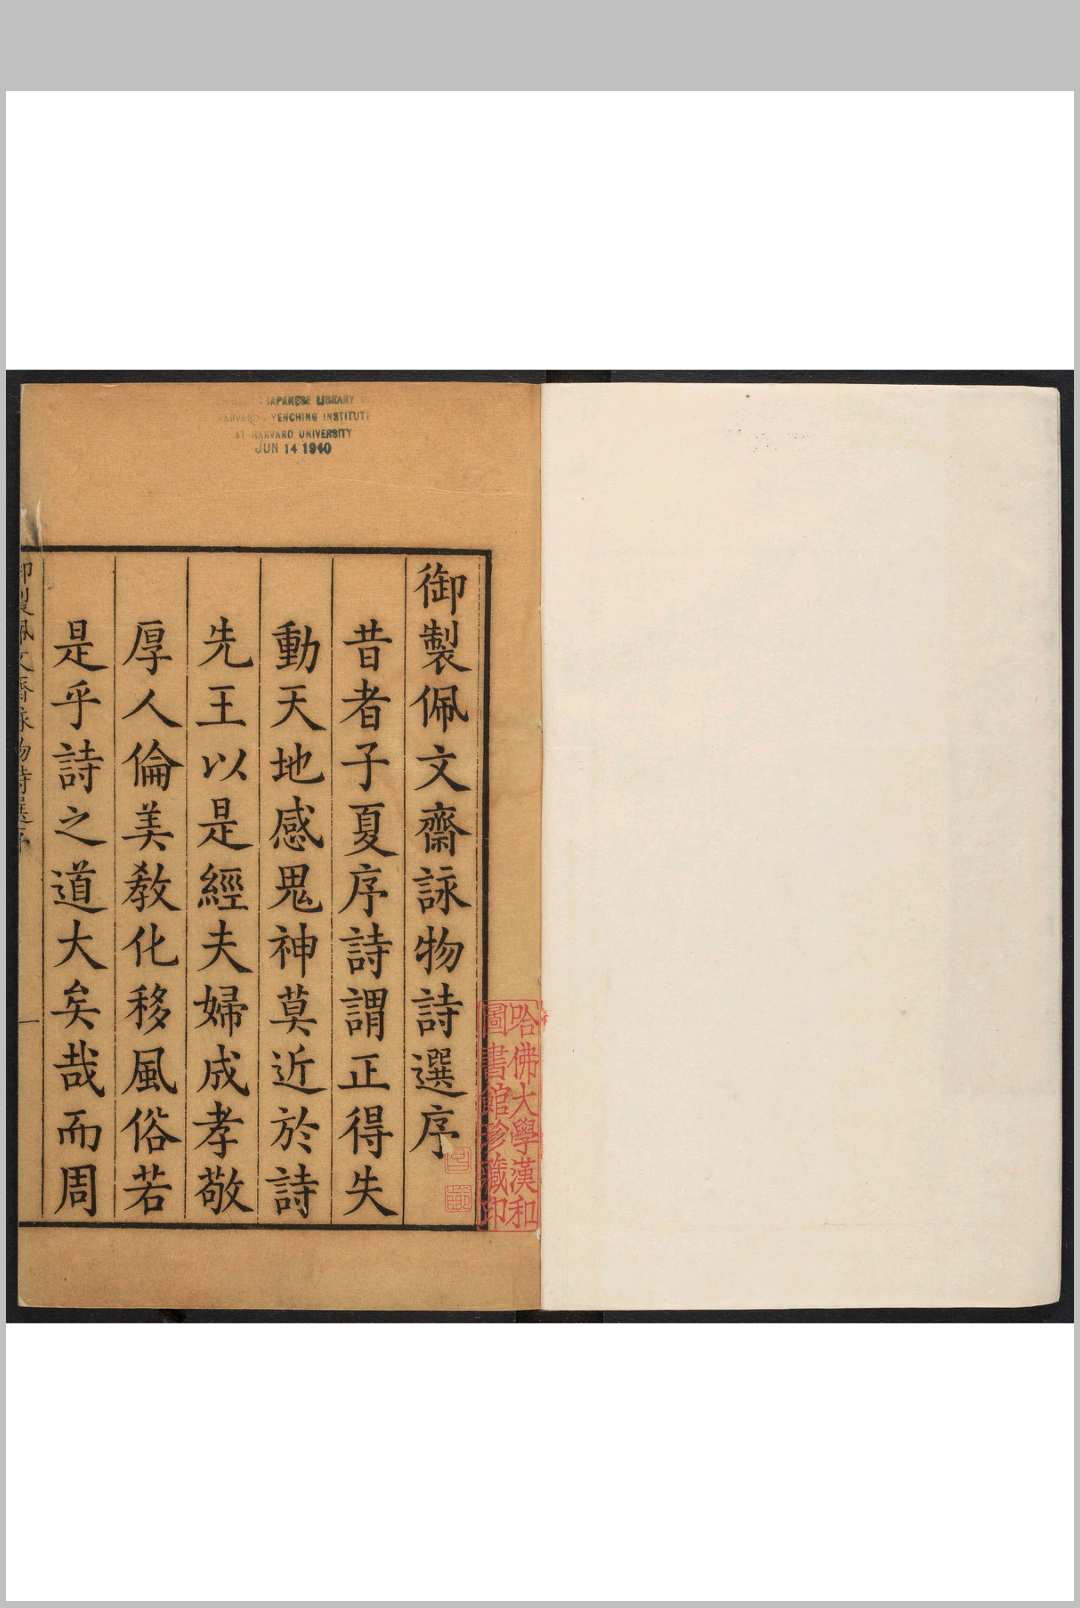 JAPANESE LIBRARY
HARVARD-YENCHING INSTITUTE
AT HARVARD UNIVERSITY
JUN 14 1940
御製佩文齋詠物詩選序
昔者子夏序詩謂正得失
動天地感鬼神莫近於詩
先王以是經夫婦成孝敬
厚人倫美教化移風俗若
是乎詩之道大矣哉而周
御製佩文齋詠物詩選序
一
哈佛大學漢和
圖書館珍藏印